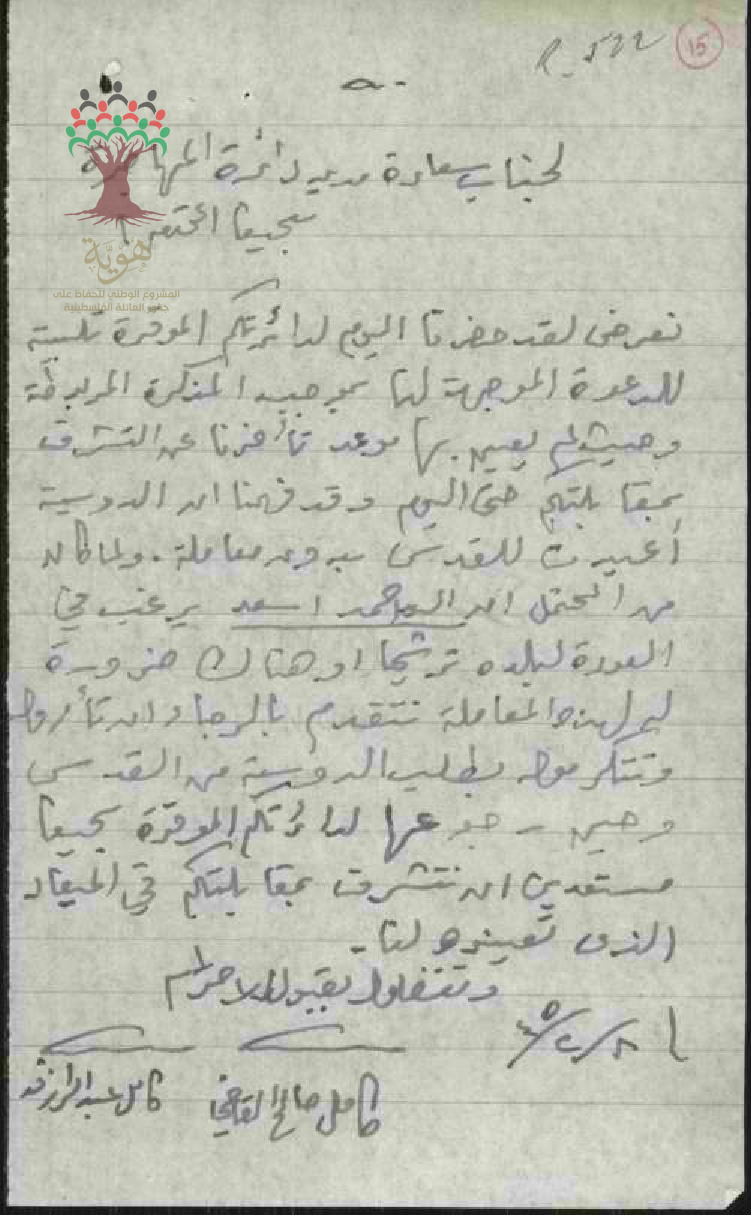 15
لجناب سعادة مدير دائرة المهاجرة
بحيفا المحترم
هوية
المشروع الوطني للحفاظ على
جذور العائلة الفلسطينية
نعرض لقد حضرنا اليوم لدائرتكم الموقرة تلبية
للدعوة الموجهة لنا بموجب المذكرة المربوطة
وحيث لم يعين بها موعد تأخرنا عن التشرف
بمقابلتكم حتى اليوم وقد فهمنا ان الدوسية
أعيدت للقدس بدون معاملة. ولما كان
من المحتمل ان السيد احمد اسعد يرغب في
العودة لبلده ترشيحا او هناك ضرورة
لهذه المعاملة نتقدم بالرجاء ان تأمروا
وتتكرموا بطلب الدوسية من القدس
وحين رجوعها لدائرتكم الموقرة بحيفا
مستعدين ان نتشرف بمقابلتكم في الميعاد
الذي تعينوه لنا.
وتفضلوا بقبول الاحترام
كامل صالح القاضي كامل عبد الرازق